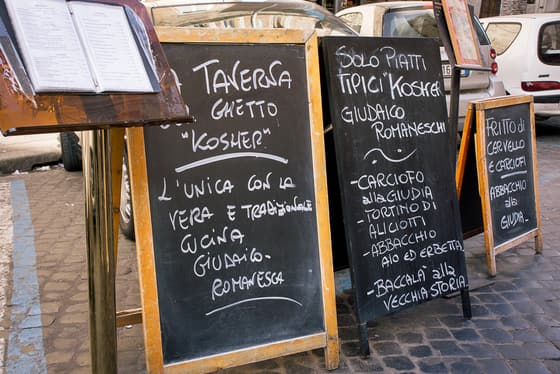 TAVERNA
GHETTO
"KOSHER"
L'UNICA CON LA
VERA E TRADIZIONALE
CUCINA
GIUDAICO-
ROMANESCA
SOLO PIATTI
TIPICI "KOSHER
GIUDAICO
ROMANESCHI
- CARCIOFO
alla GIUDIA
- TORTINO DI
ALICIOTTI
- ABBACCHIO
AIO ED ERBETTA
- BACCALA' alla
VECCHIA STORIA
FRITTO di
CERVELLO
E CARCIOFI
ABBACCHIO
alla
GIUDIA.